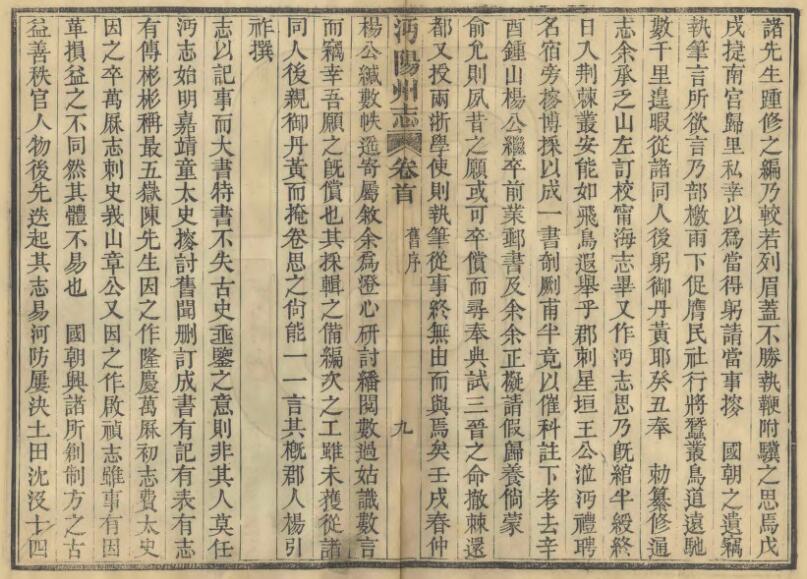 諸先生踵修之編乃較若列眉蓋不勝執鞭附驥之思焉戊
戌捷南宮歸里私幸以爲當得躬請當事搜　國朝之遺竊
執筆言所欲言乃部檄雨下促膺民社行將蠶叢鳥道遠馳
數千里遑暇從諸同人後躬御丹黃耶癸丑奉　勅纂修通
志余承乏山左訂校甯海志畢又作沔志思乃旣綰半綬終
日入荆棘叢安能如飛鳥遐舉乎郡刺星垣王公涖沔禮聘
名宿旁搜博採以成一書剞劂甫半竟以催科註下考去辛
酉鍾山楊公繼卒前業郵書及余余正擬請假歸養倘蒙
俞允則夙昔之願或可卒償而尋奉典試三晉之命撤棘還
都又投兩浙學使則執筆從事終無由而與焉矣壬戌春仲
沔陽州志　卷首　舊序　九
楊公緘數帙遙寄屬敘余爲澄心研討繙閱數過姑識數言
而竊幸吾願之旣償也其採輯之備編次之工雖未獲從諸
同人後親御丹黃而掩卷思之尙能一一言其槪郡人楊引
祚撰
志以記事而大書特書不失古史垂鑒之意則非其人莫任
沔志始明嘉靖童太史搜討舊聞刪訂成書有記有表有志
有傳彬彬稱最五嶽陳先生因之作隆慶萬厤初志費太史
因之卒萬厤志刺史峩山章公又因之作啟禎志雖事有因
革損益之不同然其體不易也　國朝興諸所剏制方之古
益善秩官人物後先迭起其志易河防屢決土田沈沒十四